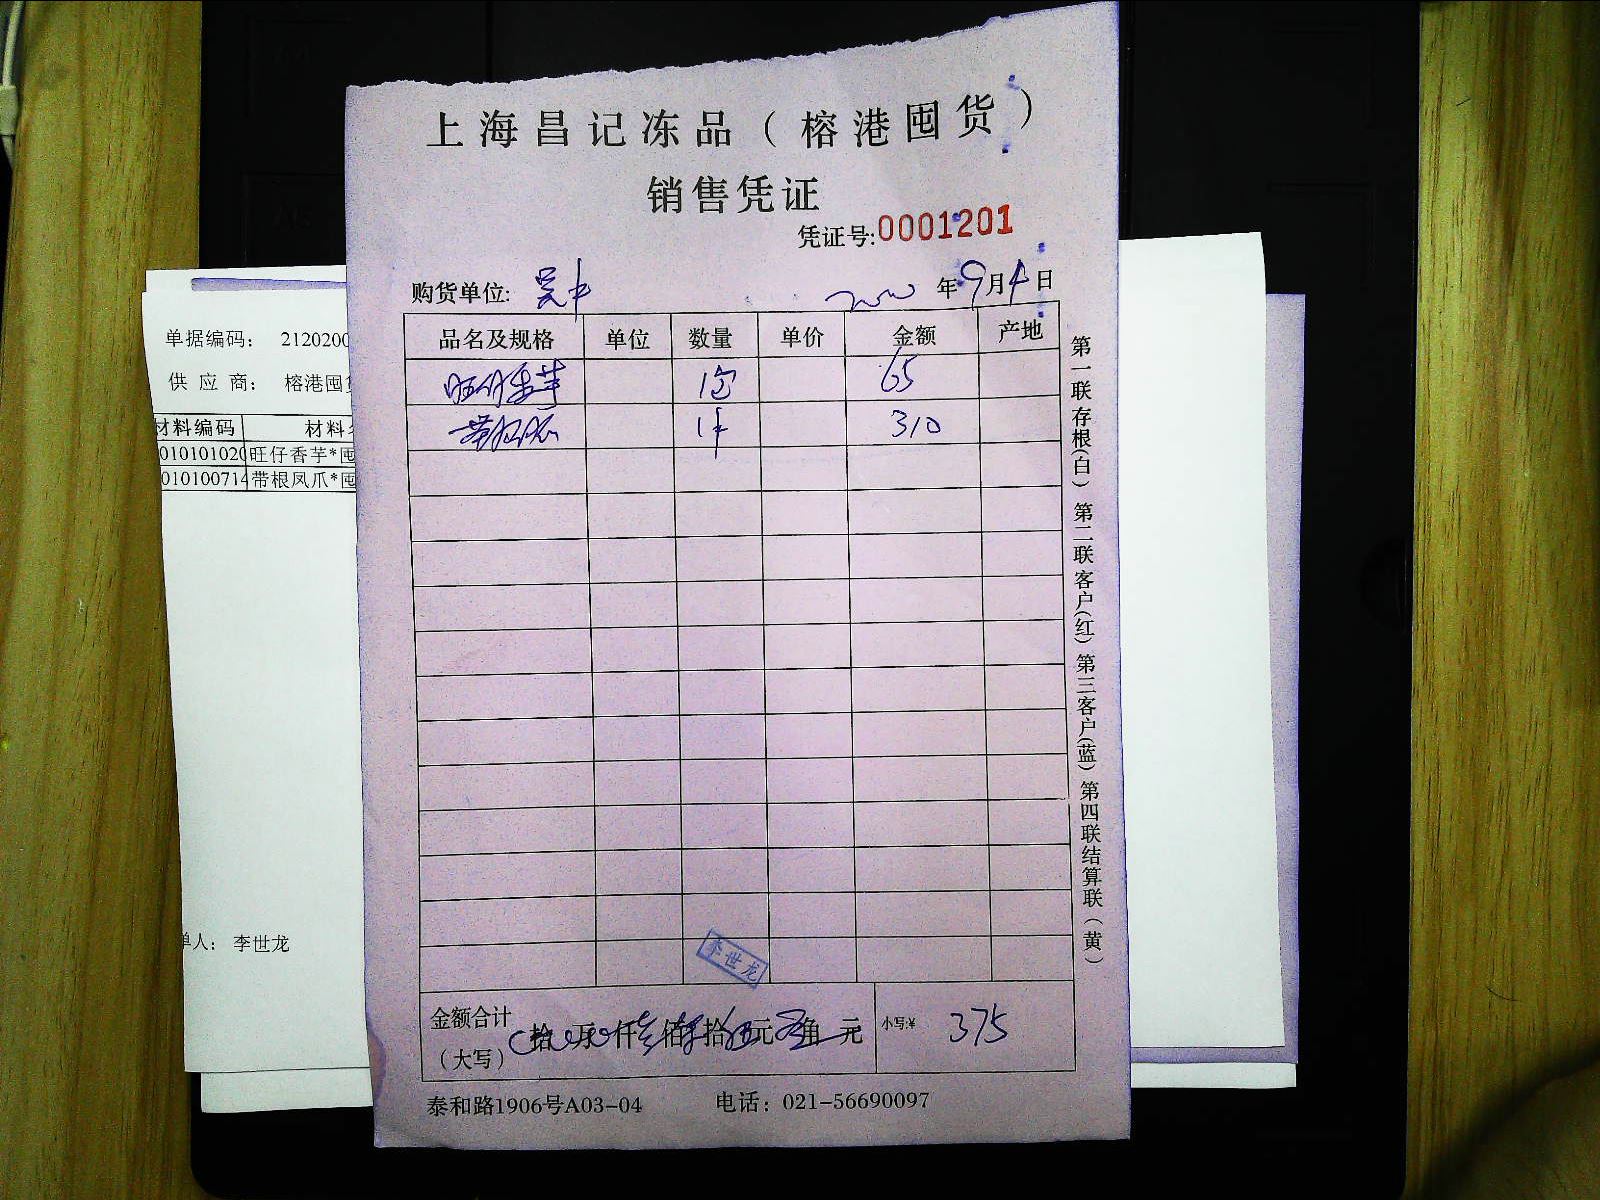 上海昌记冻品（榕港囤货）
销售凭证
凭证号:0001201
购货单位: 吴中 年9月4日
品名及规格 单位 数量 单价 金额 产地
旺仔香芋 1包 65
带根凤爪 1件 310
金额合计（大写） 拾 万 仟 叁佰 柒拾 伍元 角 元 小写:¥ 375
泰和路1906号A03-04 电话：021-56690097
第一联存根(白) 第二联客户(红) 第三客户(蓝) 第四联结算联(黄)
李世龙
单据编码： 2120200
供应商： 榕港囤
材料编码 材料
010101020 旺仔香芋*囤
010100714 带根凤爪*囤
单人： 李世龙